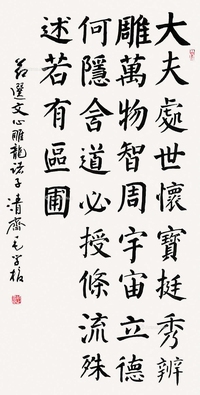 大夫處世懷寶挺秀辨
雕萬物智周宇宙立德
何隱舍道必授條流殊
述若有區圃
節選文心雕龍諸子 清齋